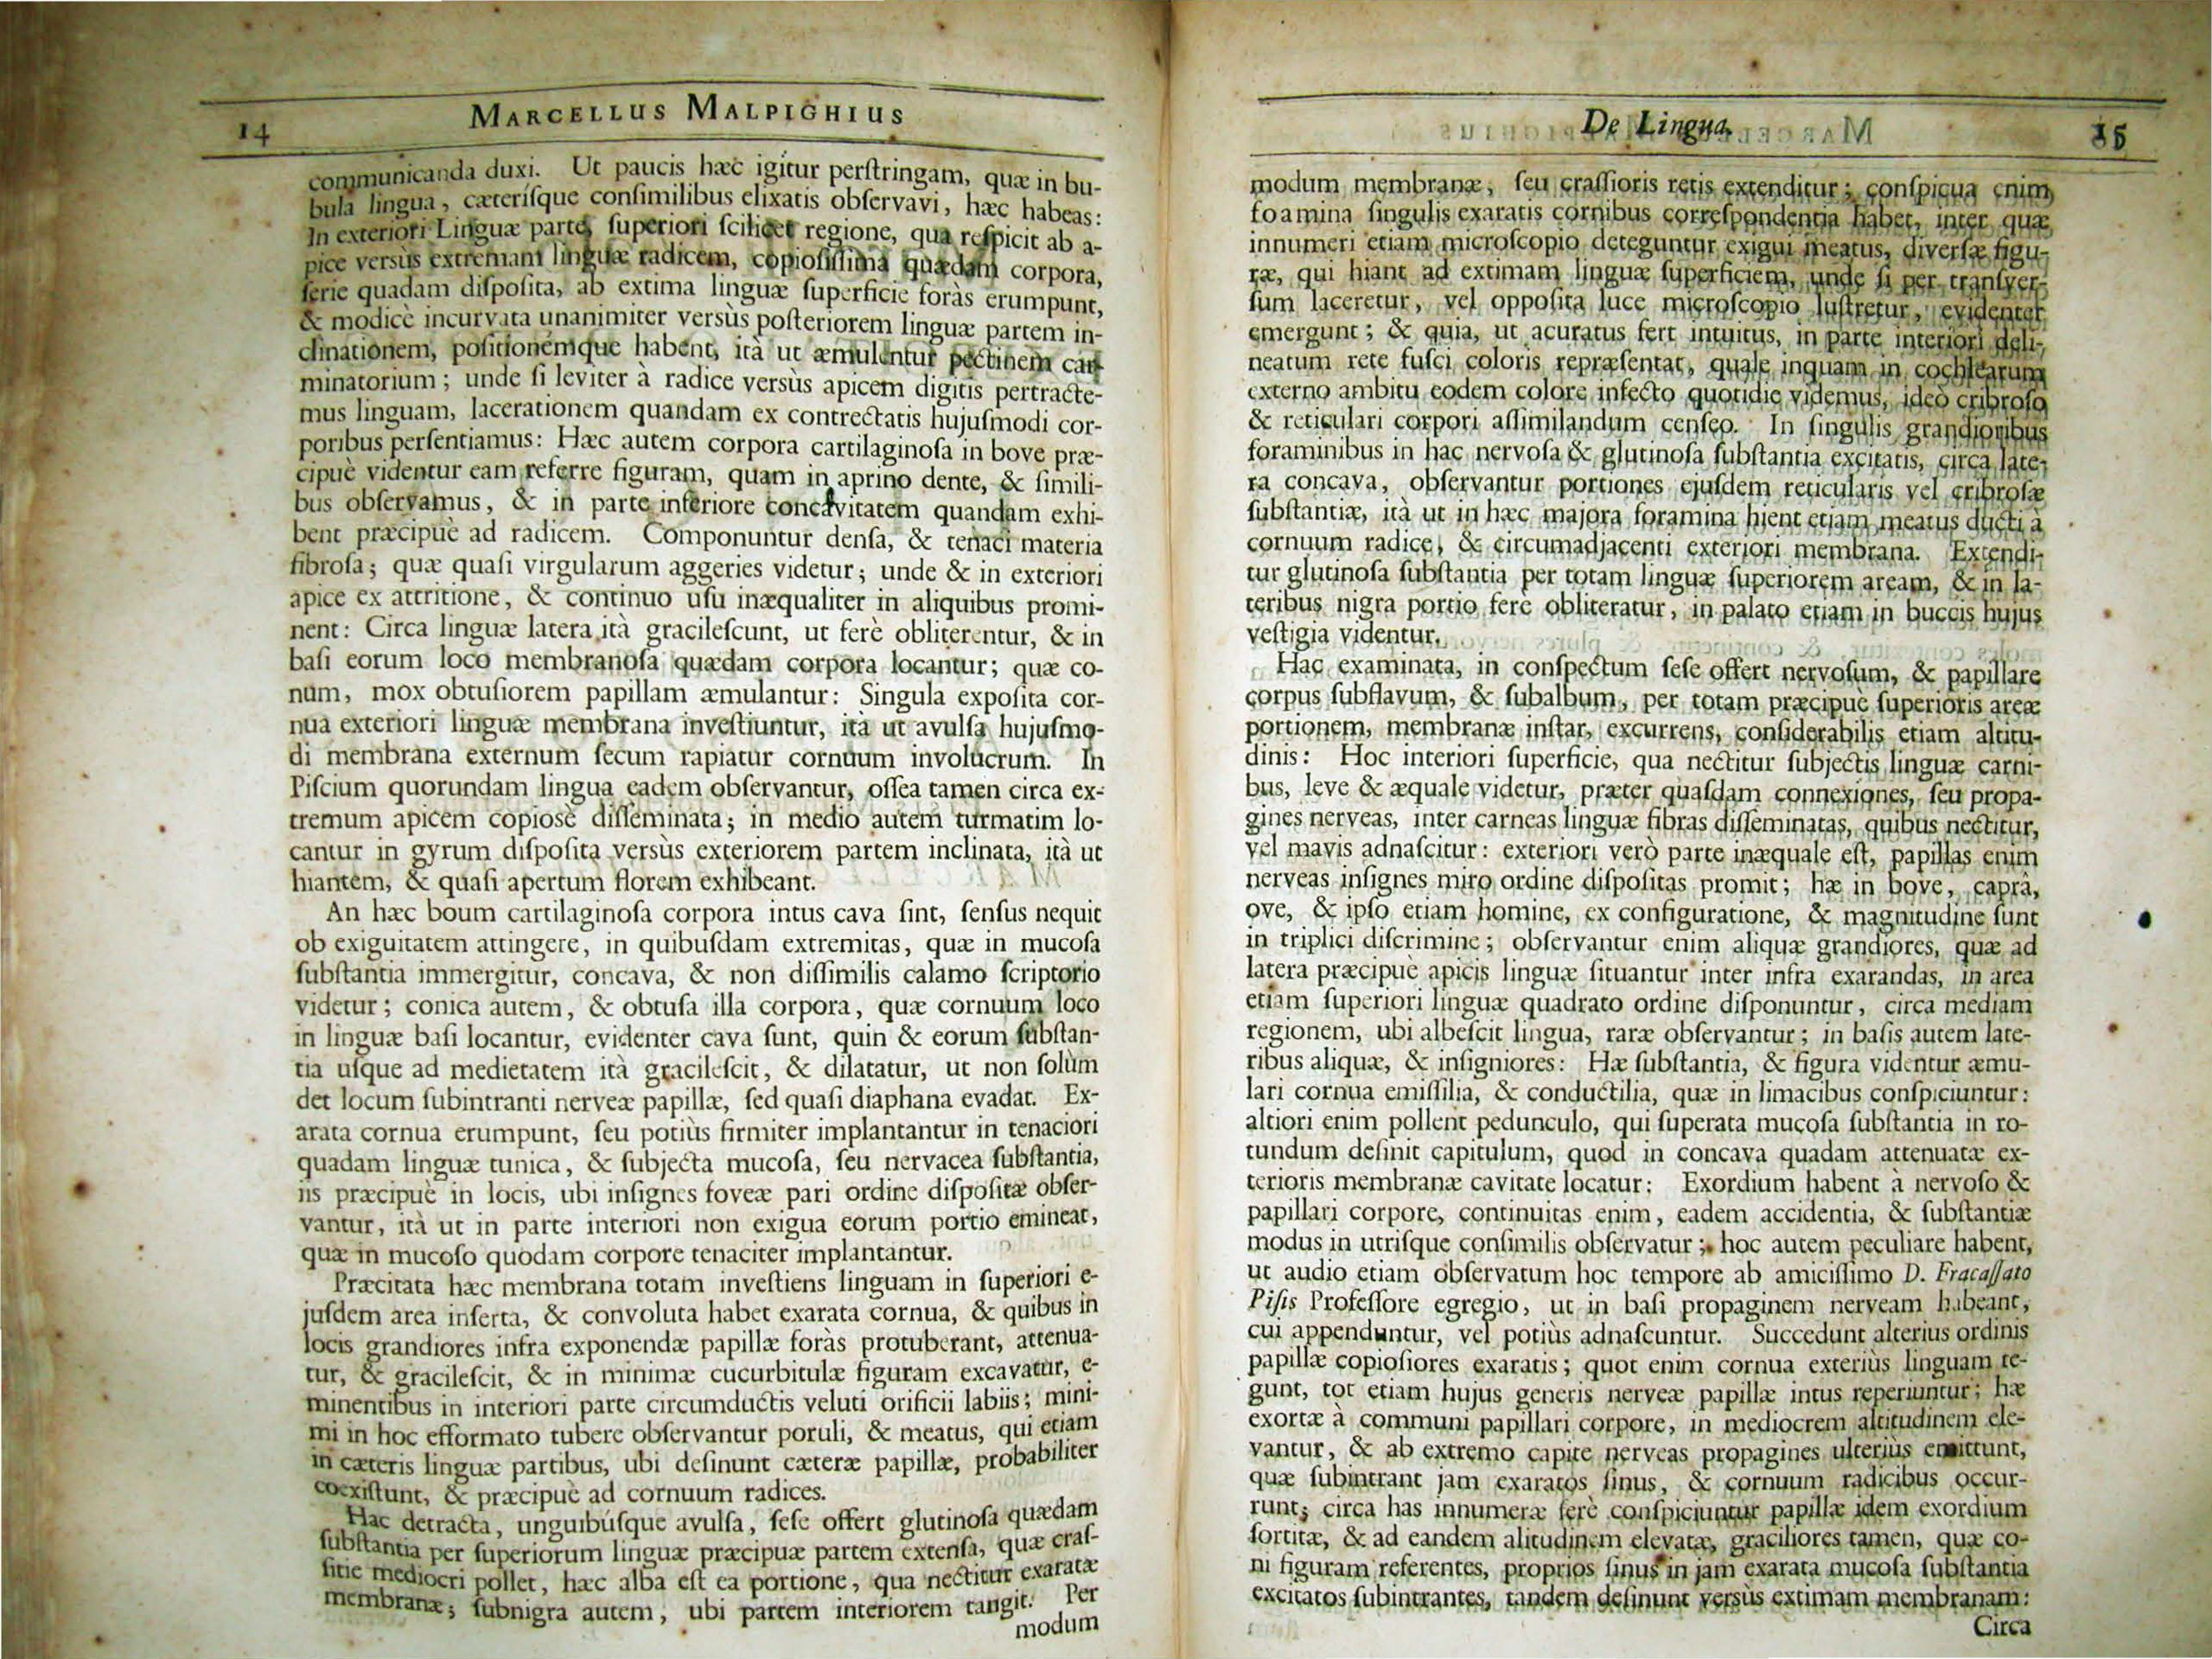 14
MARCELLUS MALPIGHIUS
communicanda duxi. Ut paucis hæc igitur perſtringam, quæ in bu-
bula lingua, cæteriſque conſimilibus elixatis obſervavi, hæc habeas:
In exteriori Linguæ parte, ſuperiori ſcilicet regione, qua reſpicit ab a-
pice versùs extremam linguæ radicem, copioſiſſima quædam corpora,
ſerie quadam diſpoſita, ab extima linguæ ſuperficie foràs erumpunt,
& modicè incurvata unanimiter versùs poſteriorem linguæ partem in-
clinationem, poſitionémque habent, ità ut æmulentur pectinem car-
minatorium; unde ſi leviter à radice versùs apicem digitis pertracte-
mus linguam, lacerationem quandam ex contrectatis hujuſmodi cor-
poribus perſentiamus: Hæc autem corpora cartilaginoſa in bove præ-
cipuè videntur eam referre figuram, quam in aprino dente, & ſimili-
bus obſervamus, & in parte inferiore concavitatem quandam exhi-
bent præcipuè ad radicem. Componuntur denſa, & tenaci materia
fibroſa; quæ quaſi virgularum aggeries videtur; unde & in exteriori
apice ex attritione, & continuo uſu inæqualiter in aliquibus promi-
nent: Circa linguæ latera ità gracileſcunt, ut ferè obliterentur, & in
baſi eorum loco membranoſa quædam corpora locantur; quæ co-
num, mox obtuſiorem papillam æmulantur: Singula expoſita cor-
nua exteriori linguæ membrana inveſtiuntur, ità ut avulſa hujuſmo-
di membrana externum ſecum rapiatur cornuum involucrum. In
Piſcium quorundam lingua eadem obſervantur, oſſea tamen circa ex-
tremum apicem copiosè diſſeminata; in medio autem turmatim lo-
cantur in gyrum diſpoſita versùs exteriorem partem inclinata, ità ut
hiantem, & quaſi apertum florem exhibeant.
An hæc boum cartilaginoſa corpora intus cava ſint, ſenſus nequit
ob exiguitatem attingere, in quibuſdam extremitas, quæ in mucoſa
ſubſtantia immergitur, concava, & non diſſimilis calamo ſcriptorio
videtur; conica autem, & obtuſa illa corpora, quæ cornuum loco
in linguæ baſi locantur, evidenter cava ſunt, quin & eorum ſubſtan-
tia uſque ad medietatem ità gracileſcit, & dilatatur, ut non ſolùm
det locum ſubintranti nerveæ papillæ, ſed quaſi diaphana evadat. Ex-
arata cornua erumpunt, ſeu potiùs firmiter implantantur in tenaciori
quadam linguæ tunica, & ſubjecta mucoſa, ſeu nervacea ſubſtantia,
iis præcipuè in locis, ubi inſignes foveæ pari ordine diſpoſitæ obſer-
vantur, ità ut in parte interiori non exigua eorum portio emineat,
quæ in mucoſo quodam corpore tenaciter implantantur.
Præcitata hæc membrana totam inveſtiens linguam in ſuperiori e-
juſdem area inſerta, & convoluta habet exarata cornua, & quibus in
locis grandiores infra exponendæ papillæ foràs protuberant, attenua-
tur, & gracileſcit, & in minimæ cucurbitulæ figuram excavatur, e-
minentibus in interiori parte circumductis veluti orificii labiis; mini-
mi in hoc efformato tubere obſervantur poruli, & meatus, qui etiam
in cæteris linguæ partibus, ubi deſinunt cæteræ papillæ, probabiliter
coexiſtunt, & præcipuè ad cornuum radices.
Hac detracta, unguibúſque avulſa, ſeſe offert glutinoſa quædam
ſubſtantia per ſuperiorum linguæ præcipuæ partem extenſa, quæ craſ-
ſitie mediocri pollet, hæc alba eſt ea portione, qua nectitur exaratæ
membranæ; ſubnigra autem, ubi partem interiorem tangit. Per
modum
De Lingua.
15
modum membranæ, ſeu craſſioris retis extenditur; conſpicua enim
foamina ſingulis exaratis cornibus correſpondentia habet, inter quæ
innumeri etiam microſcopio deteguntur exigui meatus, diverſæ figu-
ræ, qui hiant ad extimam linguæ ſuperficiem, unde ſi per tranſver-
ſum laceretur, vel oppoſita luce microſcopio luſtretur, evidenter
emergunt; & quia, ut acuratus fert intuitus, in parte interiori deli-
neatum rete fuſci coloris repræſentat, quale inquam in cochlearum
externo ambitu eodem colore infecto quotidie videmus, ideò cribroſo
& reticulari corpori aſſimilandum cenſeo. In ſingulis grandioribus
foraminibus in hac nervoſa & glutinoſa ſubſtantia excitatis, circa late-
ra concava, obſervantur portiones ejuſdem reticularis vel cribroſæ
ſubſtantiæ, ità ut in hæc majora foramina hient etiam meatus ducti à
cornuum radice, & circumadjacenti exteriori membrana. Extendi-
tur glutinoſa ſubſtantia per totam linguæ ſuperiorem aream, & in la-
teribus nigra portio ferè obliteratur, in palato etiam in buccis hujus
veſtigia videntur.
Hac examinata, in conſpectum ſeſe offert nervoſum, & papillare
corpus ſubflavum, & ſubalbum, per totam præcipuè ſuperioris areæ
portionem, membranæ inſtar, excurrens, conſiderabilis etiam altitu-
dinis: Hoc interiori ſuperficie, qua nectitur ſubjectis linguæ carni-
bus, leve & æquale videtur, præter quaſdam connexiones, ſeu propa-
gines nerveas, inter carneas linguæ fibras diſſeminatas, quibus nectitur,
vel mavis adnaſcitur: exteriori verò parte inæquale eſt, papillas enim
nerveas inſignes miro ordine diſpoſitas promit; hæ in bove, caprâ,
ove, & ipſo etiam homine, ex configuratione, & magnitudine ſunt
in triplici diſcrimine; obſervantur enim aliquæ grandiores, quæ ad
latera præcipuè apicis linguæ ſituantur inter infra exarandas, in area
etiam ſuperiori linguæ quadrato ordine diſponuntur, circa mediam
regionem, ubi albeſcit lingua, raræ obſervantur; in baſis autem late-
ribus aliquæ, & inſigniores: Hæ ſubſtantia, & figura videntur æmu-
lari cornua emiſſilia, & conductilia, quæ in limacibus conſpiciuntur:
altiori enim pollent pedunculo, qui ſuperata mucoſa ſubſtantia in ro-
tundum deſinit capitulum, quod in concava quadam attenuatæ ex-
terioris membranæ cavitate locatur: Exordium habent à nervoſo &
papillari corpore, continuitas enim, eadem accidentia, & ſubſtantiæ
modus in utriſque conſimilis obſervatur; hoc autem peculiare habent,
ut audio etiam obſervatum hoc tempore ab amiciſſimo D. Fracaſſato
Piſis Profeſſore egregio, ut in baſi propaginem nerveam habeant,
cui appenduntur, vel potiùs adnaſcuntur. Succedunt alterius ordinis
papillæ copioſiores exaratis; quot enim cornua exteriùs linguam te-
gunt, tot etiam hujus generis nerveæ papillæ intus reperiuntur; hæ
exortæ à communi papillari corpore, in mediocrem altitudinem ele-
vantur, & ab extremo capite nerveas propagines ulteriùs emittunt,
quæ ſubintrant jam exaratos ſinus, & cornuum radicibus occur-
runt; circa has innumeræ ferè conſpiciuntur papillæ idem exordium
ſortitæ, & ad eandem alitudinem elevatæ, graciliores tamen, quæ co-
ni figuram referentes, proprios ſinus in jam exarata mucoſa ſubſtantia
excitatos ſubintrantes, tandem deſinunt versùs extimam membranam:
Circa